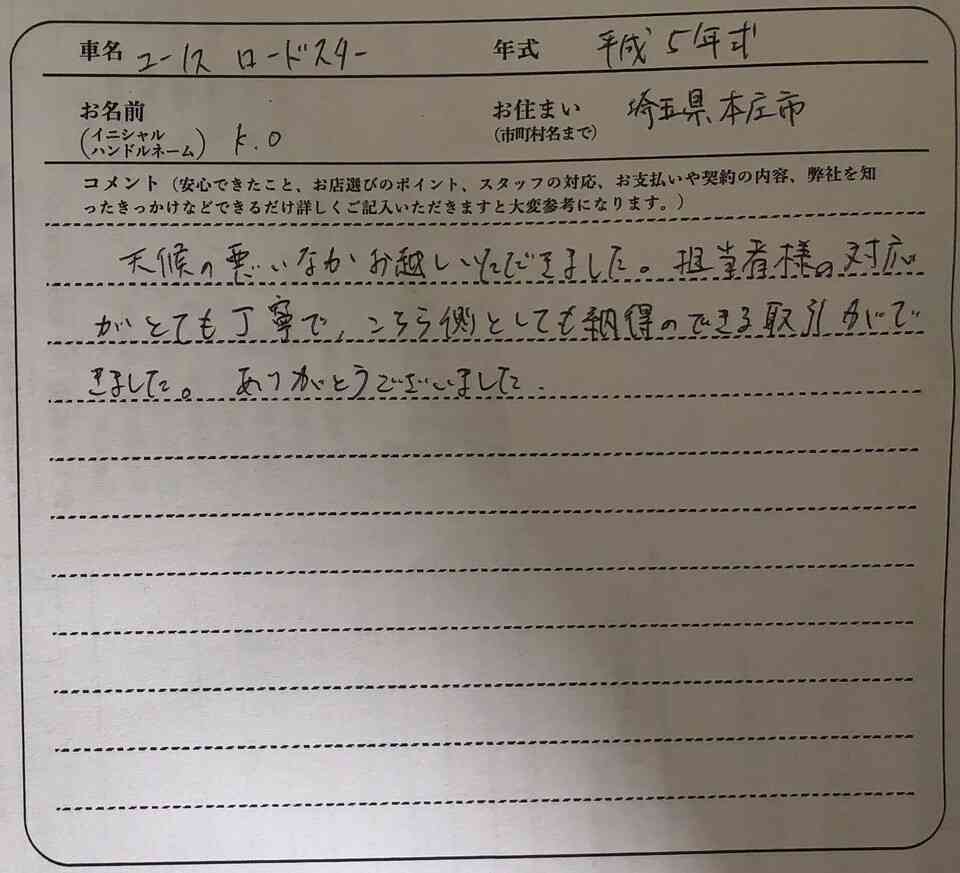 車名 ユーノス ロードスター 年式 平成5年式
お名前 (イニシャル ハンドルネーム) K.O お住まい (市町村名まで) 埼玉県本庄市
コメント（安心できたこと、お店選びのポイント、スタッフの対応、お支払いや契約の内容、弊社を知
ったきっかけなどできるだけ詳しくご記入いただきますと大変参考になります。）
天候の悪いなかお越しいただきました。担当者様の対応
がとても丁寧で、こちら側としても納得のできる取引がで
きました。ありがとうございました.